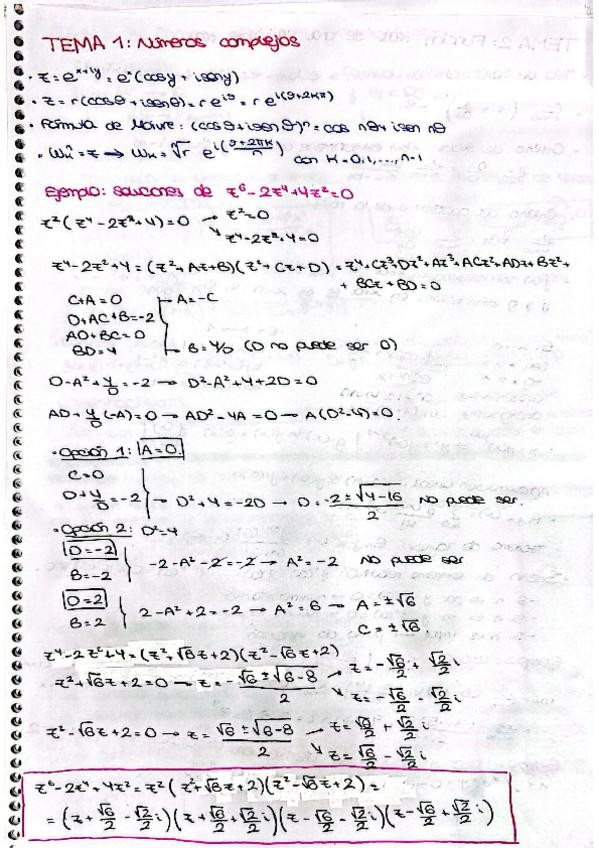 TEMA 1: Números complejos
· z = e^{x+iy} = e^x (cosy + iseny)
· z = r(cosθ + isenθ) = r e^{iθ} = r e^{i(θ+2Kπ)}
· Fórmula de Moivre: (cosθ + isenθ)^n = cos nθ + isen nθ
· w_k^n = z → w_k = ⁿ√r e^{i(θ+2πK/n)} con K=0,1,...,n-1
Ejemplo: soluciones de z⁶ - 2z⁴ + 4z² = 0
z²(z⁴ - 2z² + 4) = 0 → z² = 0
↘ z⁴ - 2z² + 4 = 0
z⁴ - 2z² + 4 = (z² + Az + B)(z² + Cz + D) = z⁴ + Cz³ + Dz² + Az³ + ACz² + ADz + Bz² +
+ BCz + BD = 0
C + A = 0 → A = -C
D + AC + B = -2
AD + BC = 0
BD = 4 → B = 4/D (D no puede ser 0)
D - A² + 4/D = -2 → D² - A² + 4 + 2D = 0
AD + 4/D (-A) = 0 → AD² - 4A = 0 → A(D² - 4) = 0.
· Opción 1: A = 0
C = 0
D + 4/D = -2 → D² + 4 = -2D → D = -2 ± √4-16 / 2 No puede ser.
· Opción 2: D² = 4
D = -2
B = -2 -2 - A² - 2 = -2 → A² = -2 No puede ser
D = 2
B = 2 2 - A² + 2 = -2 → A² = 6 → A = ±√6
C = ±√6
z⁴ - 2z² + 4 = (z² + √6z + 2)(z² - √6z + 2)
z² + √6z + 2 = 0 → z = -√6 ± √6-8 / 2 → z = -√6/2 + √2/2 i
↘ z = -√6/2 - √2/2 i
z² - √6z + 2 = 0 → z = √6 ± √6-8 / 2 → z = √6/2 + √2/2 i
↘ z = √6/2 - √2/2 i
z⁶ - 2z⁴ + 4z² = z² (z² + √6z + 2)(z² - √6z + 2) =
= (z + √6/2 - √2/2 i)(z + √6/2 + √2/2 i)(z - √6/2 - √2/2 i)(z - √6/2 + √2/2 i)